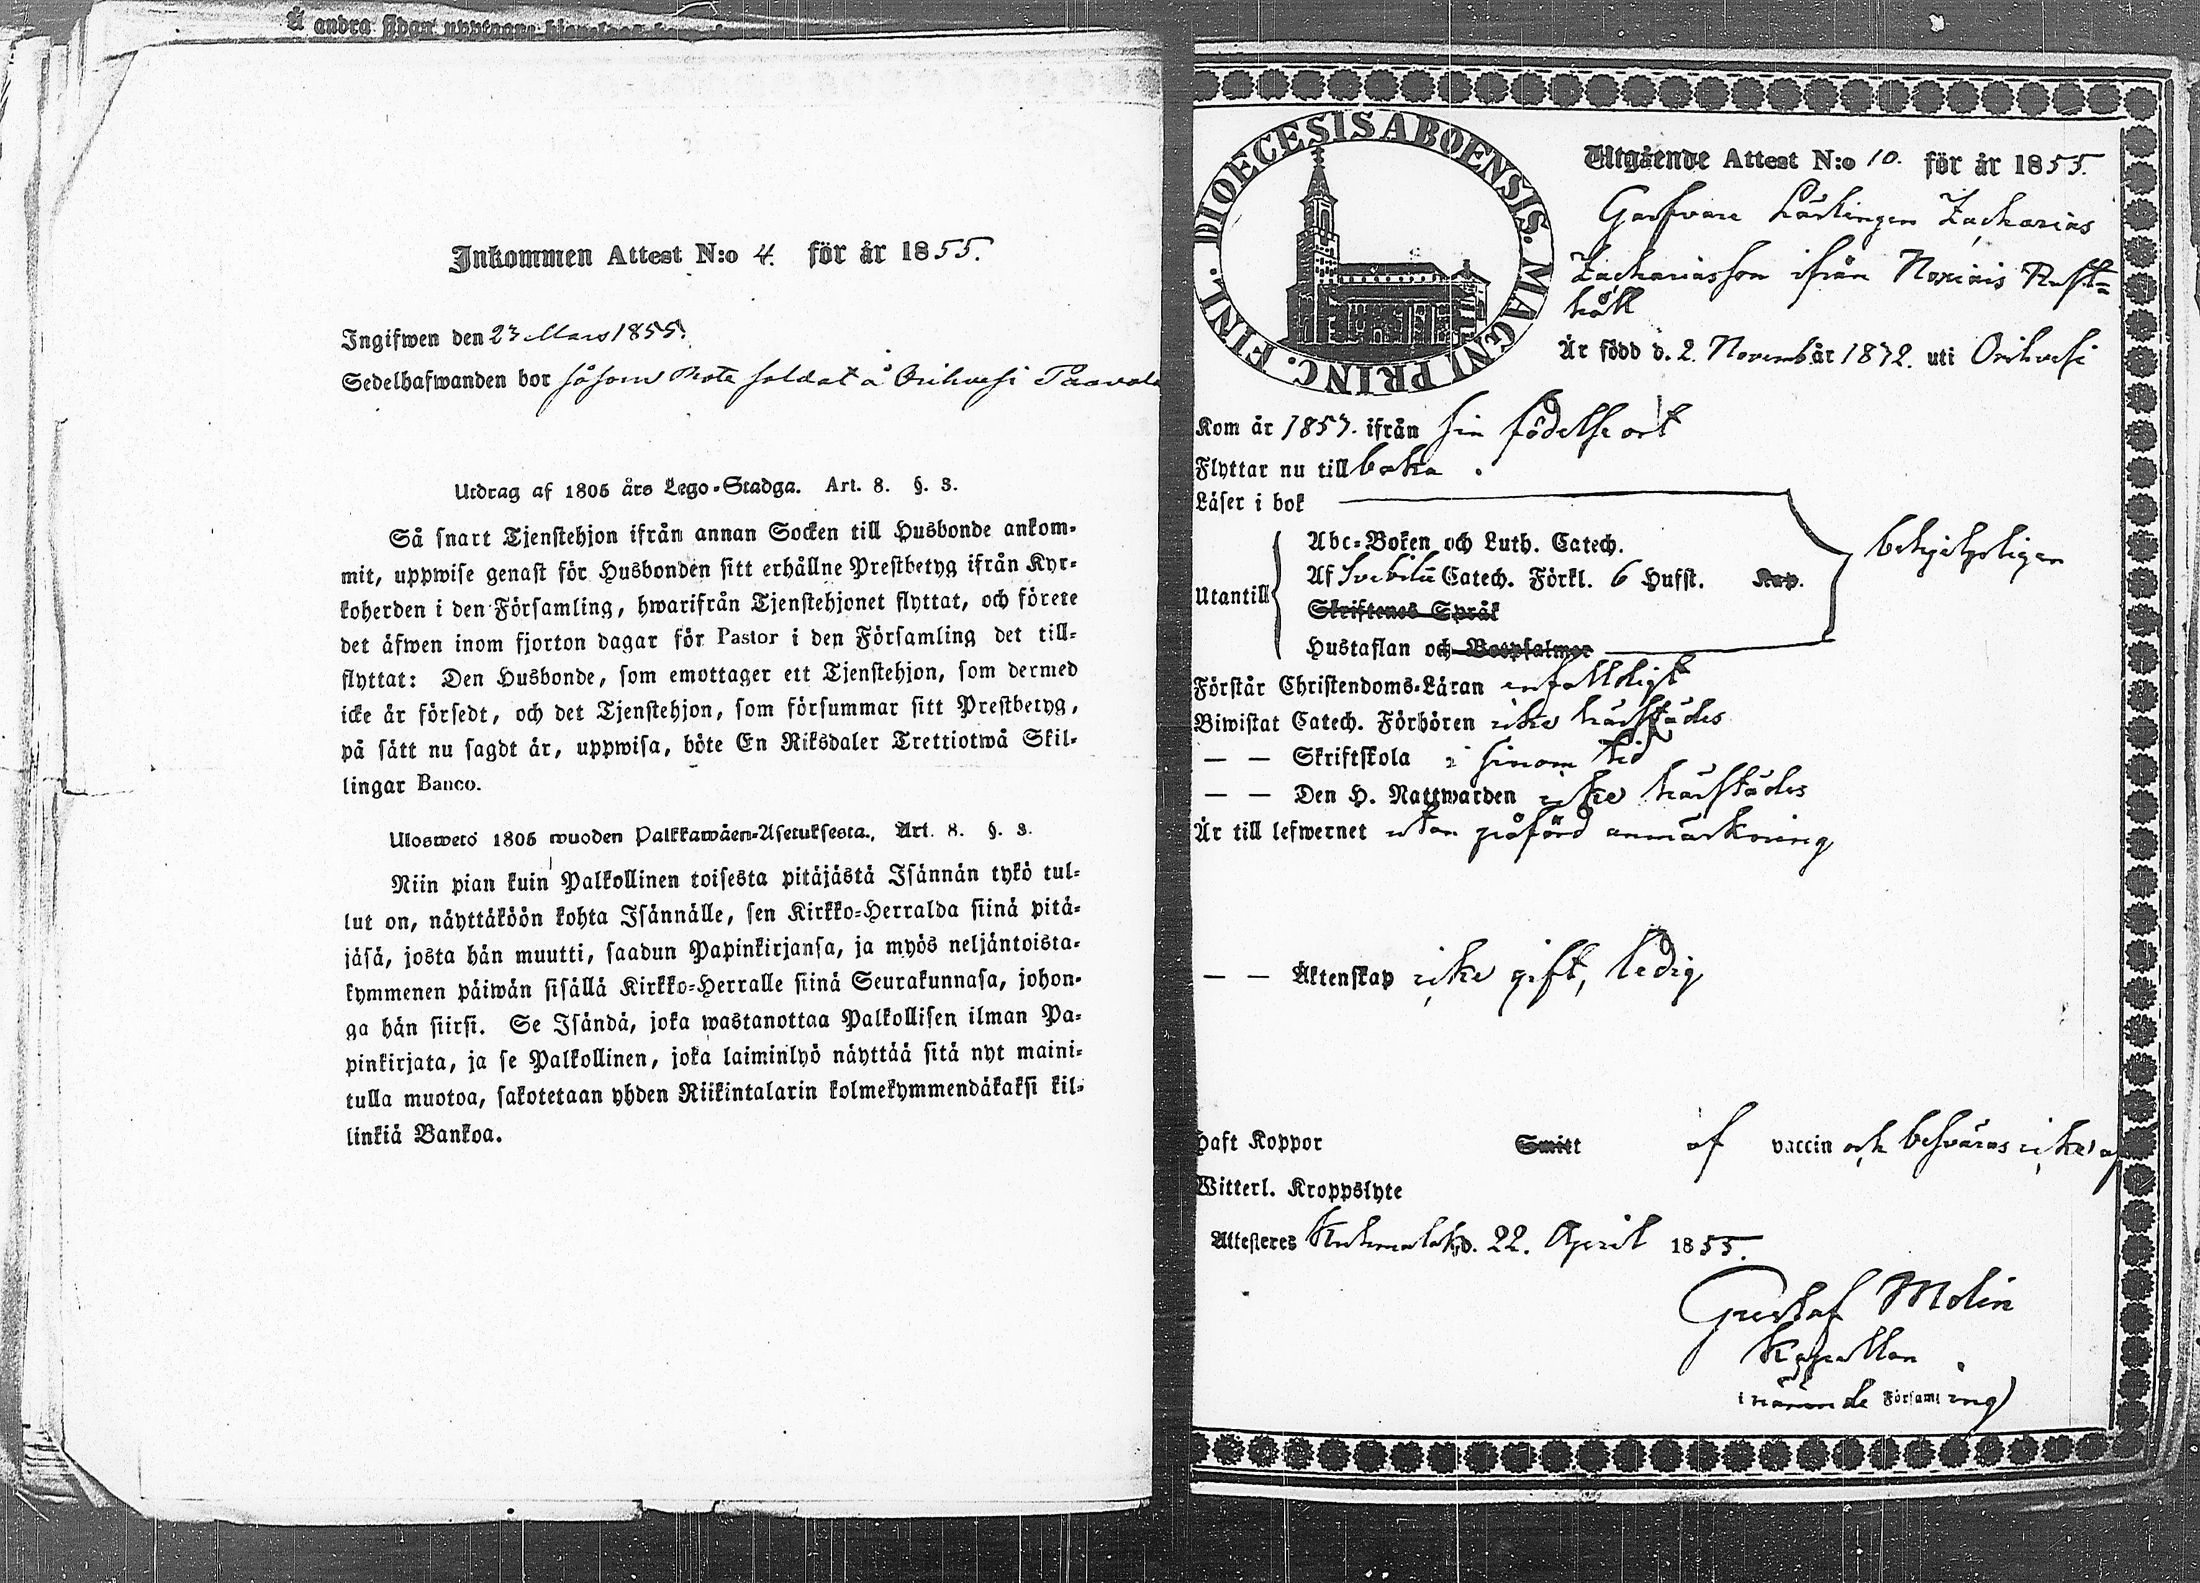 Å andra sidan upptages
Inkommen Attest N:o 4. för år 1855.
Ingifwen den 23 Mars 1855.
Sedelhafwanden bor såsom Rote soldat å Orihvesi Paavola
Utdrag af 1805 års Lego-Stadga. Art. 8. §. 3.
Så snart Tjenstehjon ifrån annan Socken till Husbonde ankom-
mit, uppwise genast för Husbonden sitt erhållne Prestbetyg ifrån Kyr-
koherden i den Församling, hwarifrån Tjenstehjonet flyttat, och förete
det äfwen inom fjorton dagar för Pastor i den Församling det till-
flyttat: Den Husbonde, som emottager ett Tjenstehjon, som dermed
icke är försedt, och det Tjenstehjon, som försummar sitt Prestbetyg,
på sätt nu sagdt är, uppwisa, böte En Riksdaler Trettiotwå Skil-
lingar Banco.
Uloswetö 1805 wuoden Palkkawäen-Asetuksesta, Art. 8. §. 3.
Niin pian kuin Palkollinen toisesta pitäjästä Isännän tykö tul-
lut on, näyttäköön kohta Isännälle, sen Kirkko-Herralda siinä pitä-
jäsä, josta hän muutti, saadun Papinkirjansa, ja myös neljäntoista-
kymmenen päiwän sisällä Kirkko-Herralle siinä Seurakunnasa, johon-
ga hän siirsi. Se Isändä, joka wastanottaa Palkollisen ilman Pa-
pinkirjata, ja se Palkollinen, joka laiminlyö näyttää sitä nyt maini-
tulla muotoa, sakotetaan yhden Riikintalarin kolmekymmendäkaksi kil-
linkiä Bankoa.
DIOECESIS ABOENSIS. MAGNI PRINC. FINL.
Utgående Attest N:o 10. för år 1855.
Garfvare Lärlingen Zacharias
Zachariasson ifrån Rust=
håll
Är född d. 2. Novemb år 1832. uti Orihvesi
Kom år 1853. ifrån sin födelseort
Flyttar nu till baka.
Läser i bok
Utantill
Abc-Boken och Luth. Catech.
Af Svebilii Catech. Förkl. 6 Hufst. Kap.
Skriftenes Språk
Hustaflan och Botpsalmer
behjelpligen
Förstår Christendoms-Läran enfalldigt
Biwistat Catech. Förhören icke härstädes
— — Skriftskola i sinom tid
— — Den H. Nattwarden icke härstädes
Är till lefwernet utan påförd anmärkning
— — Äktenskap icke gift, ledig
Haft Koppor Smitt af vaccin och besväras icke af
Witterl. Kroppslyte
Attesteres Kuhmalaht, d. 22. April 1855.
Gustaf Molin
Kapellan
i närnde Församling)